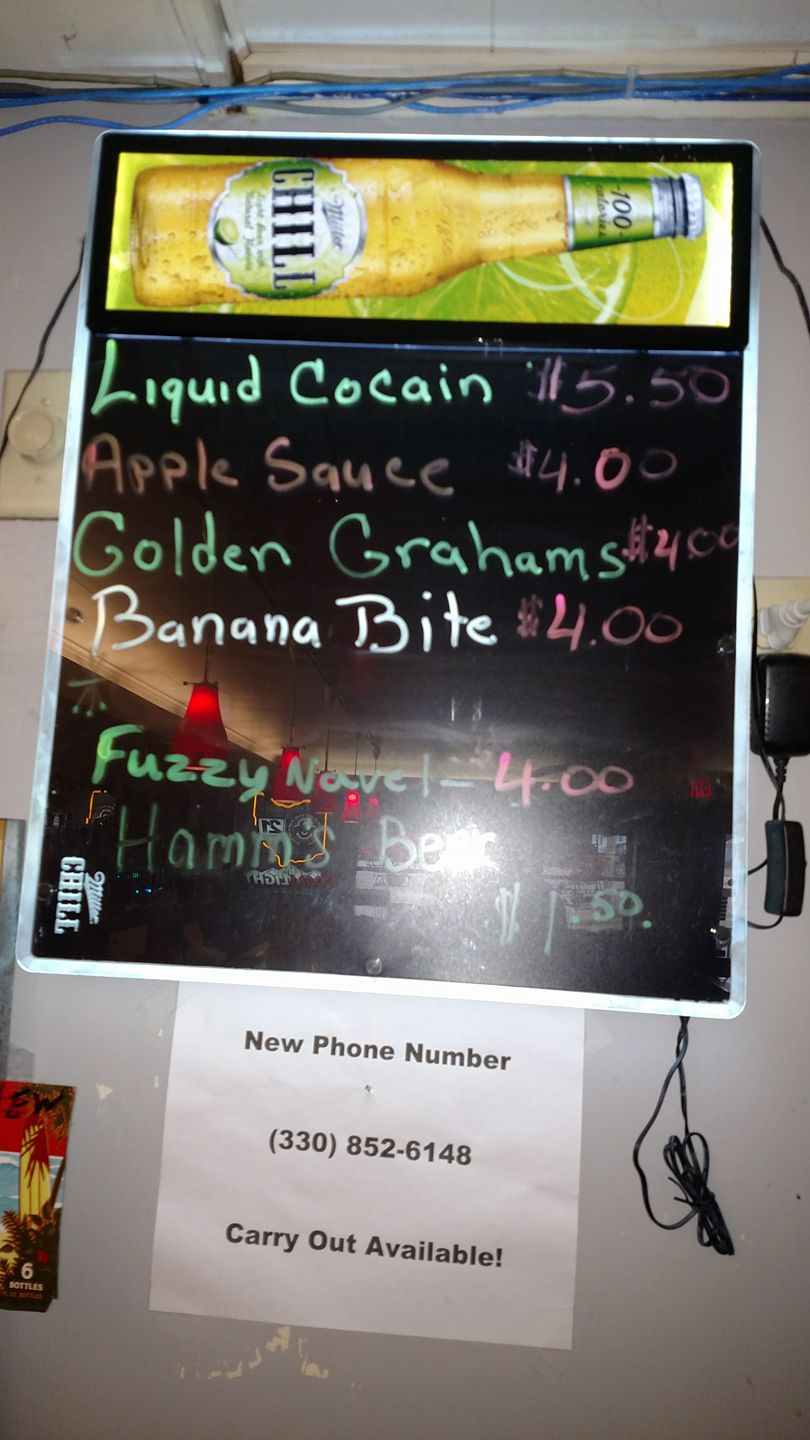 Miller
CHILL
Light Beer with
Natural Flavors
100
calories
Liquid Cocain $5.50
Apple Sauce $4.00
Golden Grahams $400
Banana Bite $4.00
Fuzzy Navel - 4.00
Hamm's Beer
$1.50.
Miller
CHILL
EXIT
21
LIGHT
New Phone Number
(330) 852-6148
Carry Out Available!
EW
6
BOTTLES